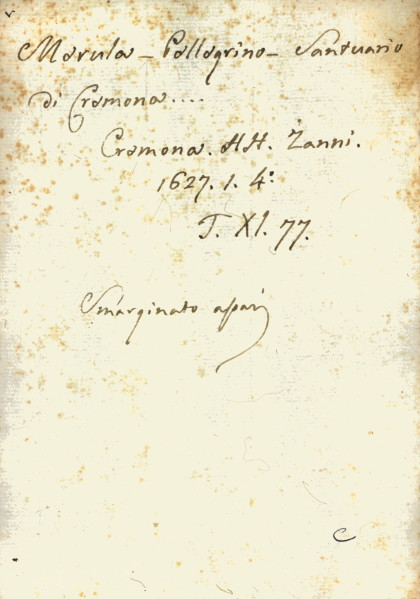 Merula - Pellegrino - Santuario
di Cremona....
Cremona. HH. Zanni.
1627. 1. 4°:
T. XI. 77.
Smarginato assai
C